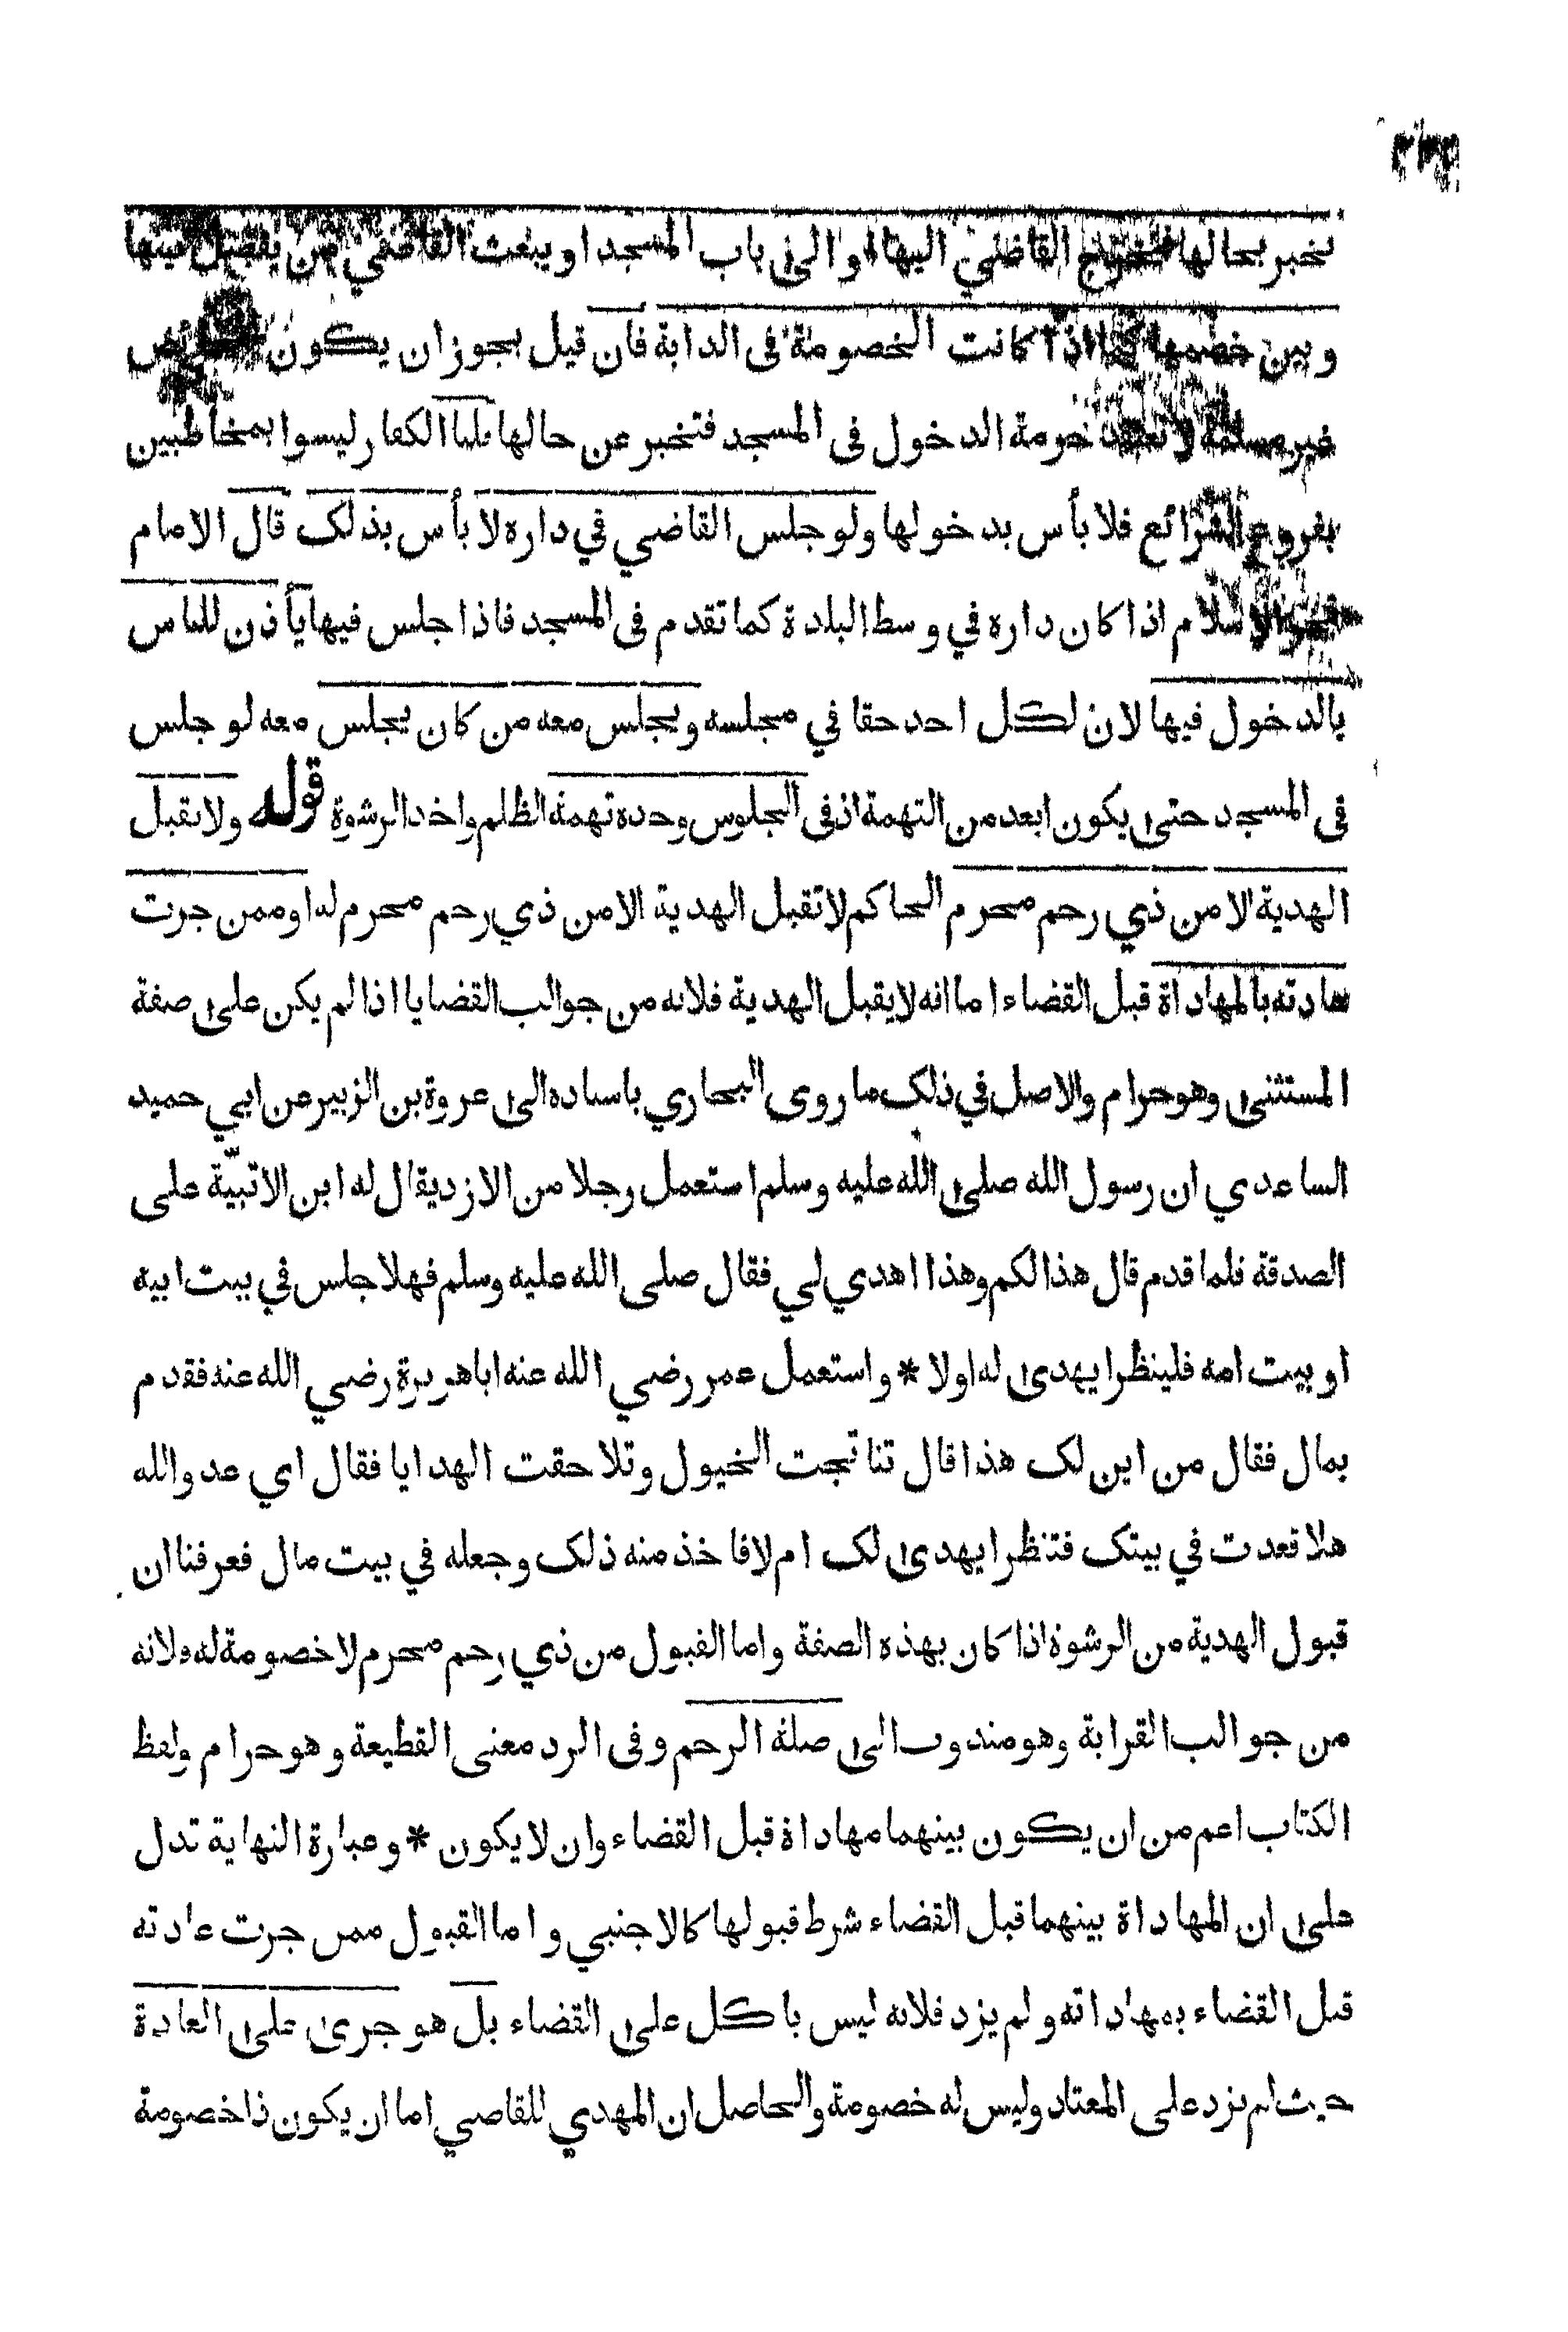 تخبر بحالها فيخرج القاضي اليها او الى باب المسجد او يبعث القاضي من يفصل بينها
وبين خصمها كما اذا كانت الخصومة في الدابة فان قيل يجوز ان يكون الحائض
غير مسلمة لا تعتقد حرمة الدخول في المسجد فتخبر عن حالها قلنا الكفار ليسوا بمخاطبين
بفروع الشرائع فلا بأس بدخولها ولو جلس القاضي في داره لا بأس بذلك قال الامام
فخر الاسلام اذا كان داره في وسط البلدة كما تقدم في المسجد فاذا جلس فيها يأذن للناس
بالدخول فيها لان لكل احد حقا في مجلسه ويجلس معه من كان يجلس معه لو جلس
في المسجد حتى يكون ابعد من التهمة اذ في الجلوس وحده تهمة الظلم واخذ الرشوة قوله ولا تقبل
الهدية الا من ذي رحم محرم الحاكم لا تقبل الهدية الا من ذي رحم محرم له او ممن جرت
عادته بالمهاداة قبل القضاء اما انه لا يقبل الهدية فلانه من جوالب القضايا اذا لم يكن على صفة
المستثنى وهو حرام والاصل في ذلك ما روى البخاري باسناده الى عروة بن الزبير عن ابي حميد
الساعدي ان رسول الله صلى الله عليه وسلم استعمل رجلا من الازد يقال له ابن الاتبيّة على
الصدقة فلما قدم قال هذا لكم وهذا اهدي لي فقال صلى الله عليه وسلم فهلا جلس في بيت ابيه
او بيت امه فلينظر ايهدى له او لا * واستعمل عمر رضي الله عنه ابا هريرة رضي الله عنه فقدم
بمال فقال من اين لك هذا قال تناتجت الخيول وتلاحقت الهدايا فقال اي عدو الله
هلا قعدت في بيتك فتنظر ايهدى لك ام لا فاخذ منه ذلك وجعله في بيت مال فعرفنا ان
قبول الهدية من الرشوة اذا كان بهذه الصفة واما القبول من ذي رحم محرم لا خصومة له فلانه
من جوالب القرابة وهو مندوب الى صلة الرحم وفي الرد معنى القطيعة وهو حرام ولفظ
الكتاب اعم من ان يكون بينهما مهاداة قبل القضاء وان لا يكون * وعبارة النهاية تدل
على ان المهاداة بينهما قبل القضاء شرط قبولها كالاجنبي واما القبول ممن جرت عادته
قبل القضاء بمهاداته ولم يزد فلانه ليس باكل على القضاء بل هو جرى على العادة
حيث لم يزد على المعتاد وليس له خصومة والحاصل ان المهدي للقاضي اما ان يكون ذا خصومة